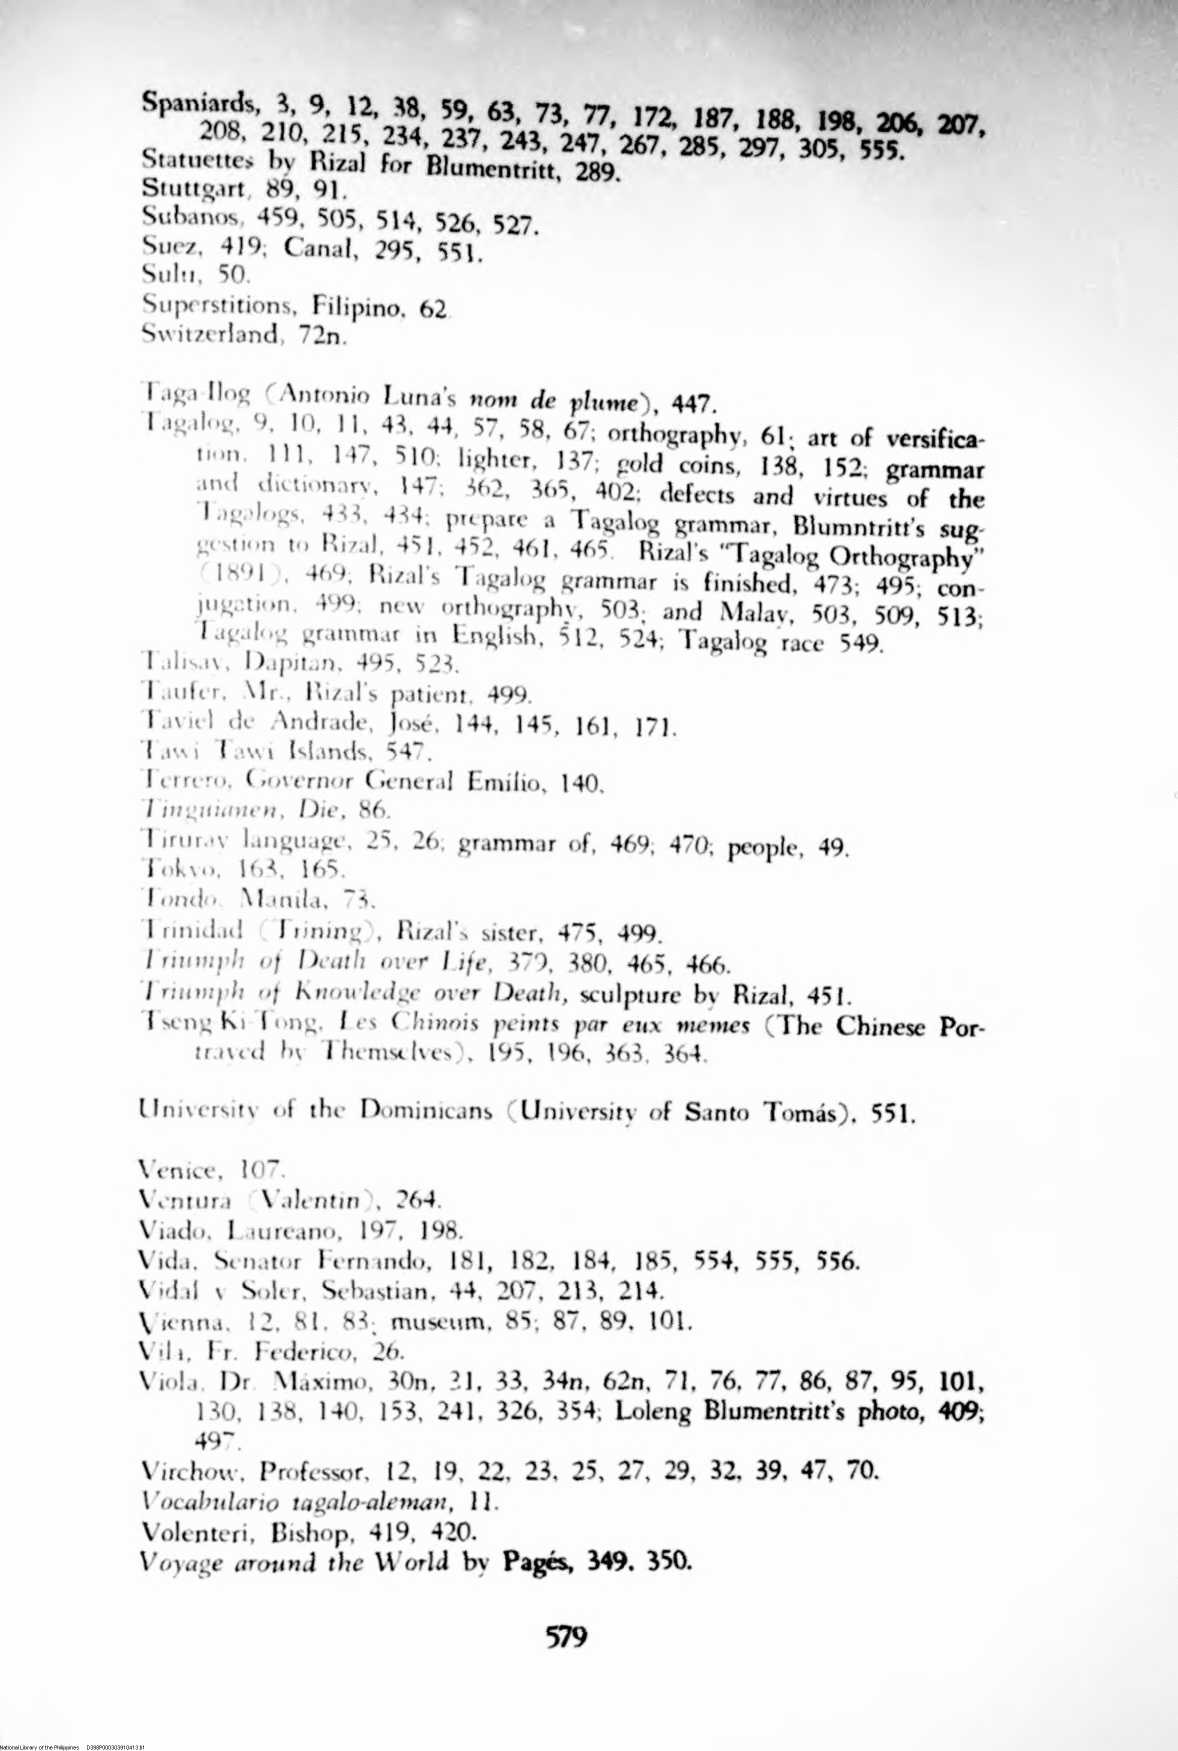 Spaniards, 3, 9, 12, 38, 59, 63, 73, 77, 172, 187, 188, 198, 206, 207,
208, 210, 215, 234, 237, 243, 247, 267, 285, 297, 305, 555.
Statuettes by Rizal for Blumentritt, 289.
Stuttgart, 89, 91.
Subanos, 459, 505, 514, 526, 527.
Suez, 419; Canal, 295, 551.
Sulu, 50.
Superstitions, Filipino, 62.
Switzerland, 72n.
Taga-Ilog (Antonio Luna's nom de plume), 447.
Tagalog, 9, 10, 11, 43, 44, 57, 58, 67; orthography, 61; art of versifica-
tion, 111, 147, 510; lighter, 137; gold coins, 138, 152; grammar
and dictionary, 147; 362, 365, 402; defects and virtues of the
Tagalogs, 433, 434; prepare a Tagalog grammar, Blumntritt's sug-
gestion to Rizal, 451, 452, 461, 465. Rizal's "Tagalog Orthography"
(1891), 469; Rizal's Tagalog grammar is finished, 473; 495; con-
jugation, 499; new orthography, 503; and Malay, 503, 509, 513;
Tagalog grammar in English, 512, 524; Tagalog race 549.
Talisay, Dapitan, 495, 523.
Taufer, Mr., Rizal's patient, 499.
Taviel de Andrade, José, 144, 145, 161, 171.
Tawi Tawi Islands, 547.
Terrero, Governor General Emilio, 140.
Tinguianen, Die, 86.
Tiruray language, 25, 26; grammar of, 469; 470; people, 49.
Tokyo, 163, 165.
Tondo, Manila, 73.
Trinidad (Trining), Rizal's sister, 475, 499.
Triumph of Death over Life, 379, 380, 465, 466.
Triumph of Knowledge over Death, sculpture by Rizal, 451.
Tseng Ki Tong, Les Chinois peints par eux memes (The Chinese Por-
trayed by Themselves), 195, 196, 363, 364.
University of the Dominicans (University of Santo Tomás), 551.
Venice, 107.
Ventura (Valentin), 264.
Viado, Laureano, 197, 198.
Vida, Senator Fernando, 181, 182, 184, 185, 554, 555, 556.
Vidal y Soler, Sebastian, 44, 207, 213, 214.
Vienna, 12, 81, 83; museum, 85; 87, 89, 101.
Vila, Fr. Federico, 26.
Viola, Dr. Máximo, 30n, 31, 33, 34n, 62n, 71, 76, 77, 86, 87, 95, 101,
130, 138, 140, 153, 241, 326, 354; Loleng Blumentritt's photo, 409;
497.
Virchow, Professor, 12, 19, 22, 23, 25, 27, 29, 32, 39, 47, 70.
Vocabulario tagalo-aleman, 11.
Volenteri, Bishop, 419, 420.
Voyage around the World by Pagés, 349, 350.
579
National Library of the Philippines D398P000303910413.61